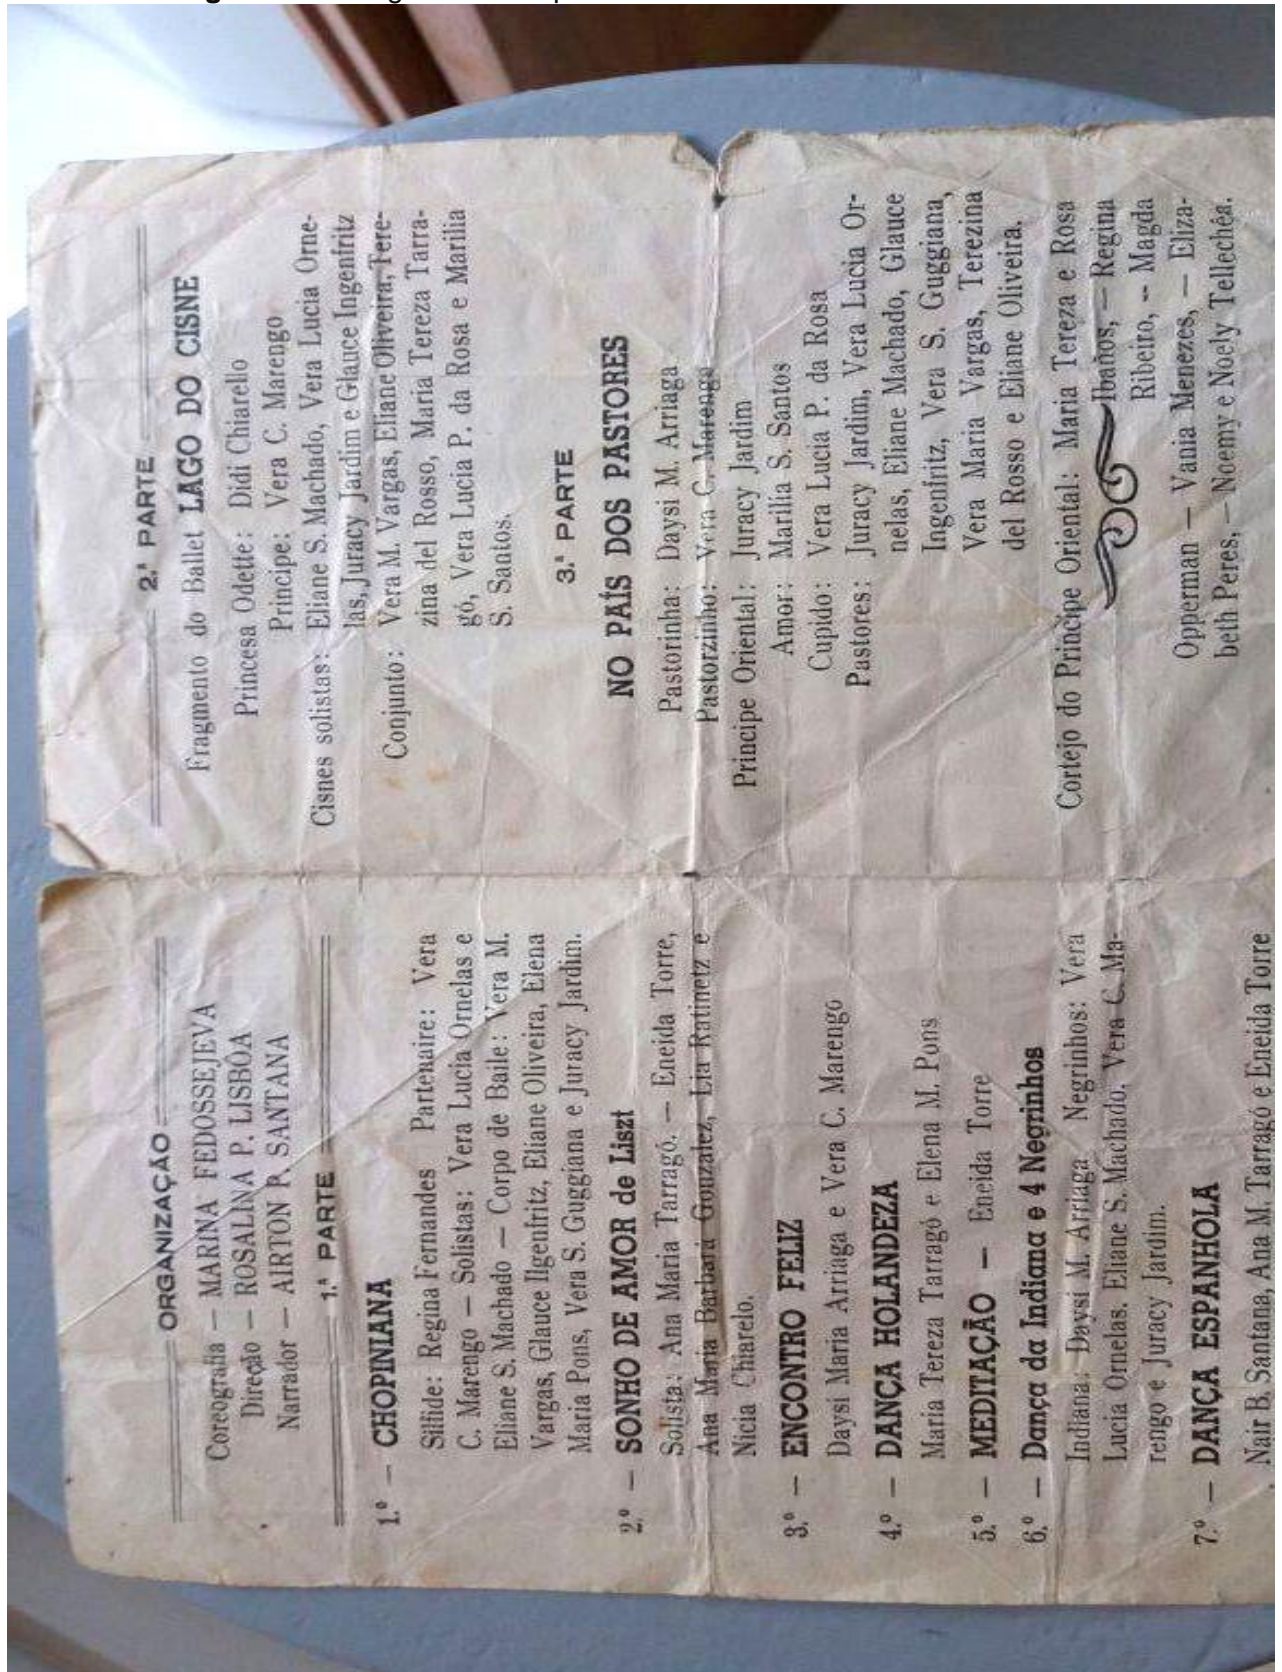 ORGANIZAÇÃO
Coreografia — MARINA FEDOSSEJEVA
Direção — ROSALINA P. LISBÔA
Narrador — AIRTON P. SANTANA
1.ª PARTE
1.º — CHOPINIANA
Silfide: Regina Fernandes Partenaire: Vera
C. Marengo — Solistas: Vera Lucia Ornelas e
Eliane S. Machado — Corpo de Baile: Vera M.
Vargas, Glauce Ilgenfritz, Eliane Oliveira, Elena
Maria Pons, Vera S. Guggiana e Juracy Jardim.
2.º — SONHO DE AMOR de Liszt
Solista: Ana Maria Tarragó. — Eneida Torre,
Ana Maria Barbará Gonzalez, Lia Ratinetz e
Nicia Chiarelo.
3.º — ENCONTRO FELIZ
Daysi Maria Arriaga e Vera C. Marengo
4.º — DANÇA HOLANDEZA
Maria Tereza Tarragó e Elena M. Pons
5.º — MEDITAÇÃO — Eneida Torre
6.º — Dança da Indiana e 4 Negrinhos
Indiana: Daysi M. Arriaga Negrinhos: Vera
Lucia Ornelas, Eliane S. Machado, Vera C. Ma-
rengo e Juracy Jardim.
7.º — DANÇA ESPANHOLA
Nair B. Santana, Ana M. Tarragó e Eneida Torre
2.ª PARTE
Fragmento do Ballet LAGO DO CISNE
Princesa Odette: Didi Chiarello
Principe: Vera C. Marengo
Cisnes solistas: Eliane S. Machado, Vera Lucia Orne-
las, Juracy Jardim e Glauce Ingenfritz
Conjunto: Vera M. Vargas, Eliane Oliveira, Tere-
zina del Rosso, Maria Tereza Tarra-
gó, Vera Lucia P. da Rosa e Marilia
S. Santos.
3.ª PARTE
NO PAÍS DOS PASTORES
Pastorinha: Daysi M. Arriaga
Pastorzinho: Vera C. Marengo
Principe Oriental: Juracy Jardim
Amor: Marilia S. Santos
Cupido: Vera Lucia P. da Rosa
Pastores: Juracy Jardim, Vera Lucia Or-
nelas, Eliane Machado, Glauce
Ingenfritz, Vera S. Guggiana,
Vera Maria Vargas, Terezina
del Rosso e Eliane Oliveira.
Cortejo do Principe Oriental: Maria Tereza e Rosa
Ibaños, — Regina
Ribeiro, — Magda
Opperman — Vania Menezes, — Eliza-
beth Peres, — Noemy e Noely Tellechêa.